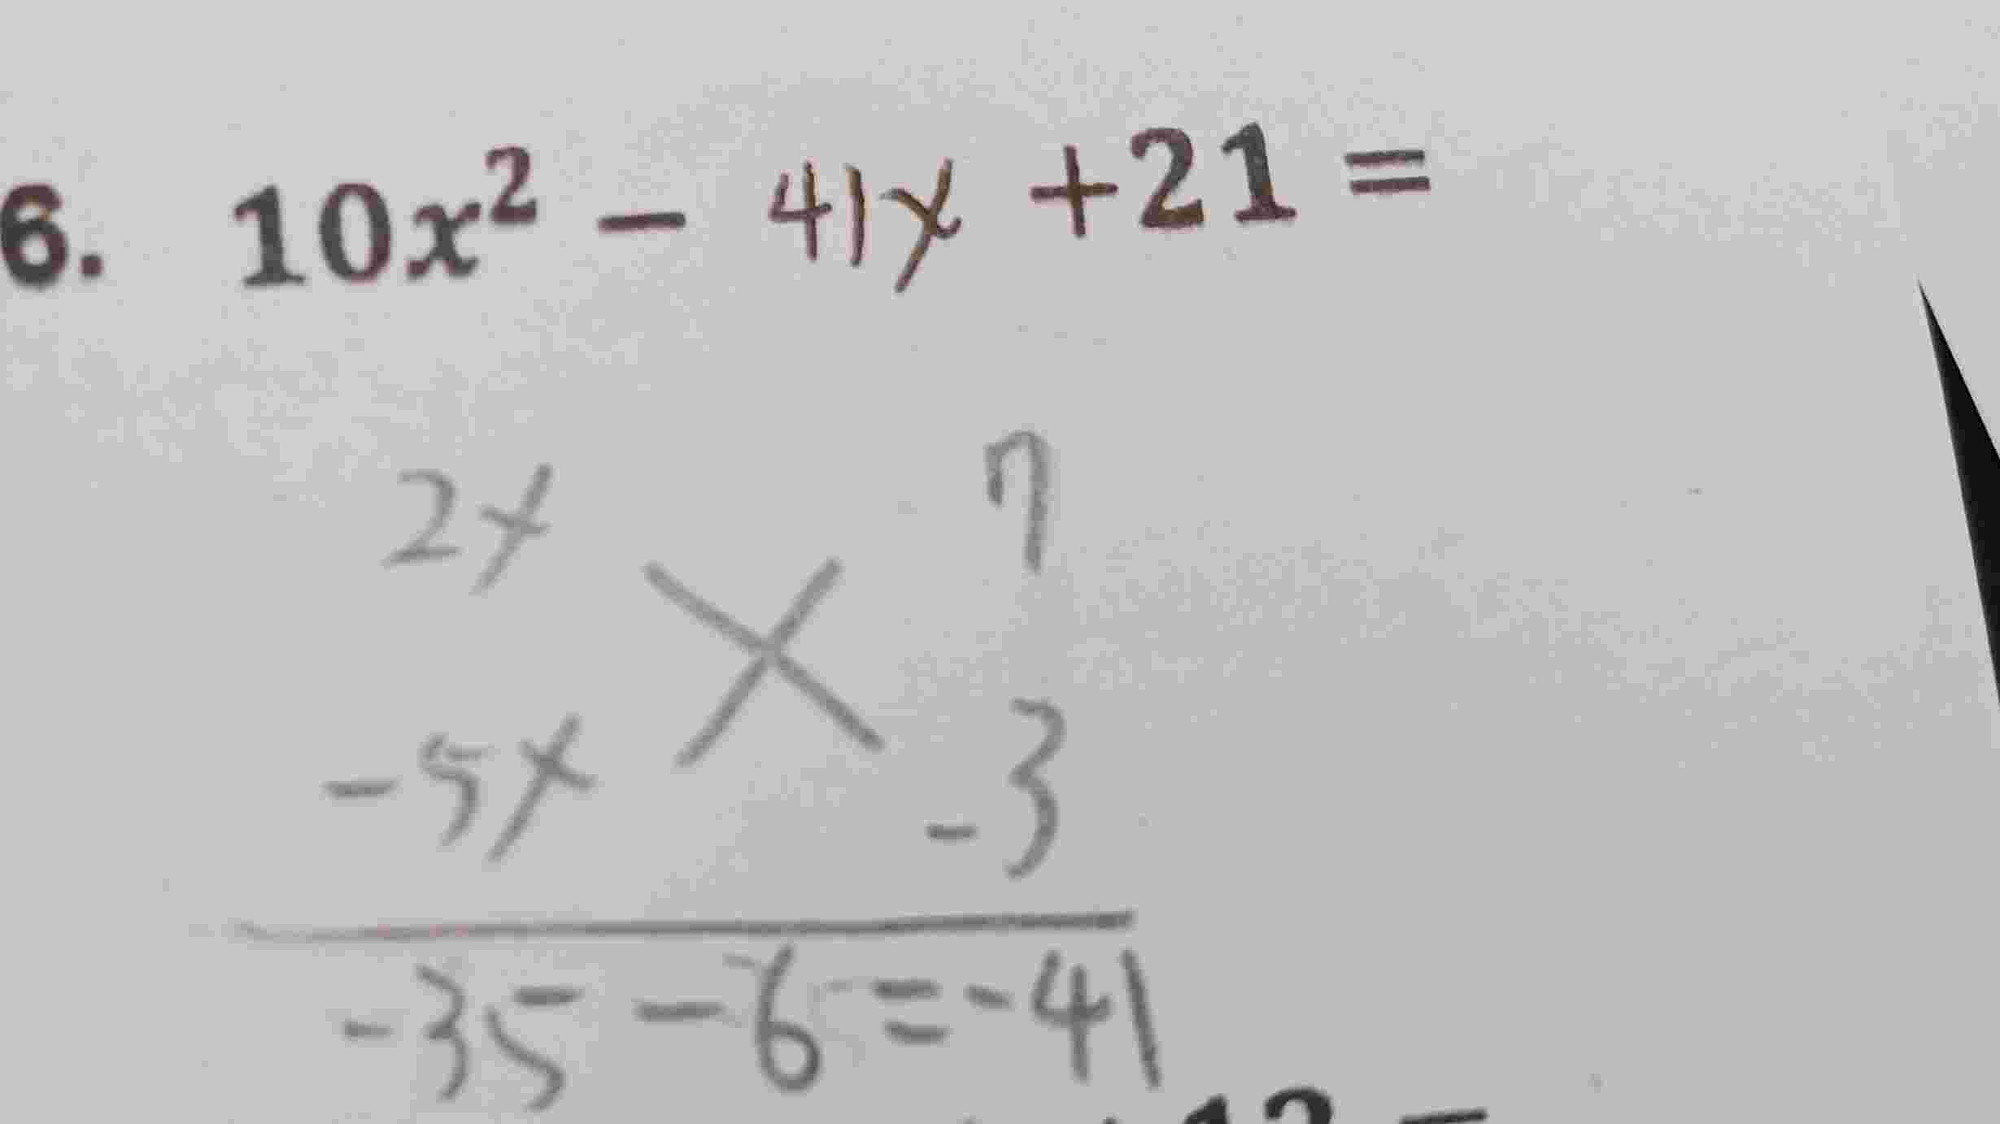 6. 10x² − 41x +21 =
2x 7
-5x -3
-35 -6 = -41